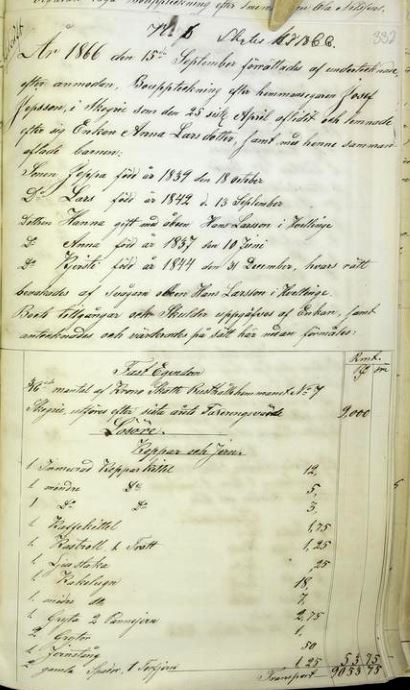 332
År 1866 den 15de September förrättades af undertecknade,
efter anmodan, Bouppteckning efter hemmansegaren Josef
Jeppsson, i Skegrie som den 25 sistl. April aflidit och lemnade
efter sig Enkan Anna Larsdotter, samt med henne samman
aflade barnen:
Sonen Jeppa född år 1839 den 18 october
Do Lars född år 1842 d. 13 September
Dottren Hanna gift med åboen Hans Larsson i Hvellinge
Do Anna född år 1837 den 10 Juni
Do Kjersti född år 1844 den 31 December, hvars rätt
bevakades af Svågern åboen Hans Larsson i Hvellinge.
Boets tillgångar och Skulder uppgåfvos af Enkan, samt
antecknades och värderades på sätt här nedan förmäles:
Rmt.
Fast Egendom
mantal af Krono Skatte Rusthållshemmanet No 7
Skegrie, upföres efter sista årets Taxeringsvärde 9,000
Lösöre.
Koppar och Jern.
1 Inmurad Kopparkittel 12,
1 mindre Do 5,
1 Do Do 3,
1 Kaffekittel 1,75
1 Kastroll 1 Tratt 1,25
1 Ljusstaka ,25
1 Kakelugn 18,
1 mindre do 7,
1 Gryta 2 Pannejern 2,75
2 Grytor 1,
1 Jernstång 50
2 gamla Spader, 1 1 25 53 75
Transport 9053 75